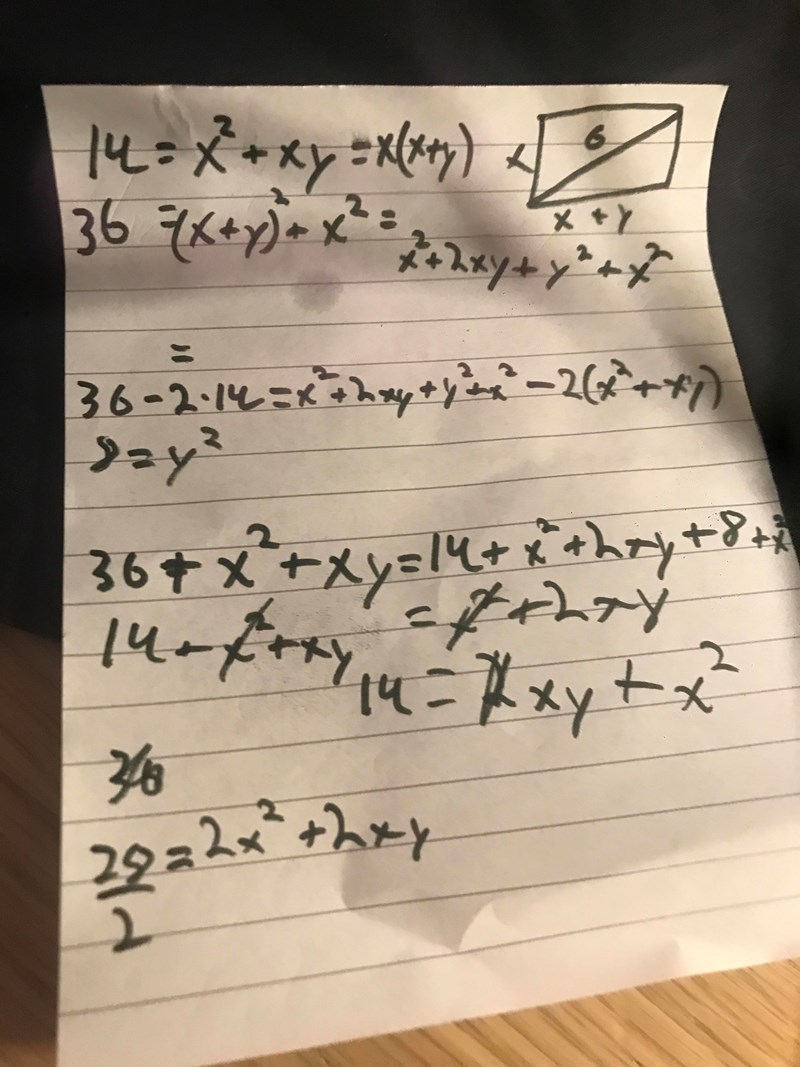 14 = x² + xy = x(x+y)
6
x
x + y
36 = (x+y)² + x² =
x² + 2xy + y² + x²
=
36 - 2·14 = x² + 2xy + y² + x² - 2(x² + xy)
8 = y²
36 + x² + xy = 14 + x² + 2xy + 8 + x²
14 + x² + xy = x² + 2xy
14 = xy + x²
36
28/2 = 2x² + 2xy